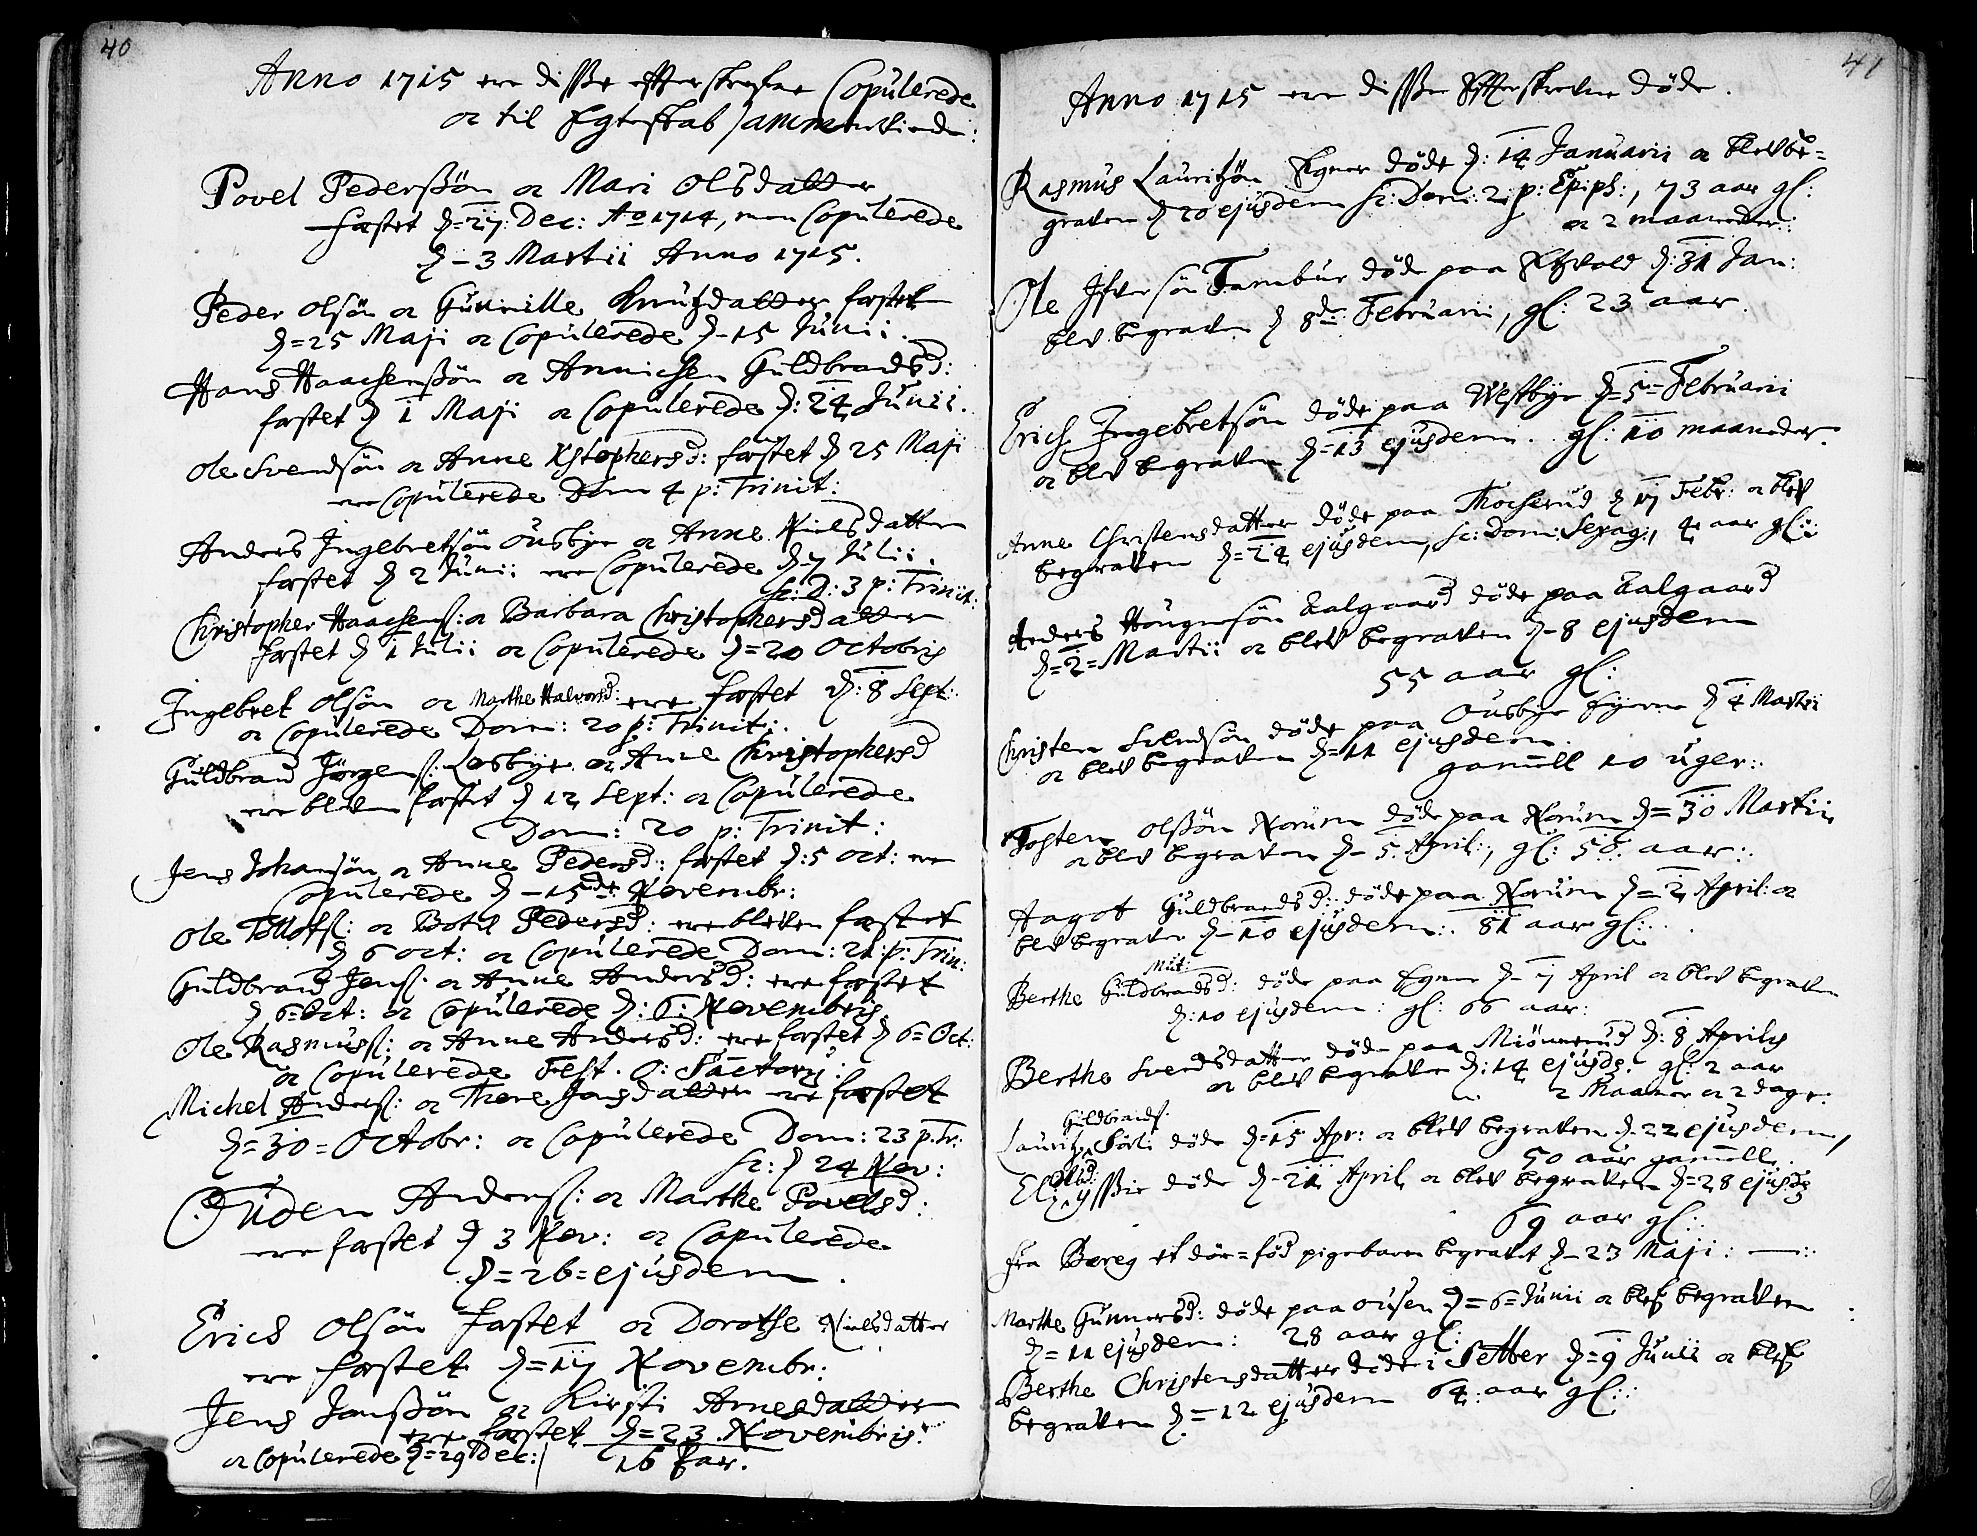 40
Anno 1715 ere disse efterskrefne Copulerede
oc til Egteskab sammenviede:
Povel Pederssøn oc Mari Olsdatter
fæstet d: 27. Dec: Ao 1714, men Copulerede
d - 3 Martii Anno 1715.
Peder Olsøn oc Gunnille Knutzdatter fæstet
d = 25 Maji oc Copulerede d - 15 Junii.
Hans Haachenssøn oc Annichen Guldbrandsd:
fæstet d 1 Maji oc Copulerede d: 24 Junii.
Ole Svendsøn oc Anne Xstophersd: fæstet d 25 Maji
ere Copulerede Dom 4 p: Trinit:
Anders Ingebretsøn Ousbye oc Anne Nielsdatter
fæstet d 2 Junii ere Copulerede d 7 Julii.
sc: D: 3 p: Trinit:
Christopher Haachens: oc Barbara Christophersdatter
fæstet d 1 Julii oc Copulerede d = 20 Octobris
Ingebret Olsøn oc Marthe Halvorsd: ere fæstet d: 8 Sept:
oc Copulerede Dom: 20 p: Trinit:
Guldbrand Jørgens: Losbye oc Anne Christophersd
ere bleven fæstet d 12 Sept: oc Copulerede
Dom: 20 p: Trinit:
Jens Johansøn oc Anne Pedersd: fæstet d: 5 Oct: ere
Copulerede d - 15de Novembr:
Ole Tollofs: oc Botel Pedersd: ere bleven fæstet
d 6 Oct: oc Copulerede Dom: 21 p: Trin:
Guldbrand Jens: oc Anne Andersd: ere fæstet
d 6 Oct: oc Copulerede d: 6: Novembris.
Ole Rasmus: oc Anne Andersd: ere fæstet d 6 = Oct:
oc Copulerede Fest. O: Sanctorum:
Michel Anders: oc Thore Jonsdatter ere fæstet
d = 30 = Octobr: oc Copulerede Dom: 23 p. Tr:
sc: d 24 Nov:
Ouden Anders: oc Marthe Povelsd:
ere fæstet d 3 Nov: oc Copulerede
d = 26 = ejusdem.
Erich Olsøn fæstet oc Dorothe Nielsdatter
ere fæstet d = 17 Novembr:
Jens Jonssøn oc Kirsti Arnesdatter
ere fæstet d = 23 Novembris:
oc Copulerede d = 29 Dec: 16 Par.
41
Anno 1715 ere disse Efterskrevne døde.
Rasmus Lauritzøn Egner døde d: 14 Januarii oc blev be=
graven d 20 ejusdem sc: Dom: 2. p: Epiph:, 73 aar gl:
oc 2 maaneder:
Ole Ifversøn Tambur døde paa Eszvold d: 31 Jan:
blev begraven d 8de Februarii, gl: 23 aar.
Erich Ingebretsøn døde paa Westbye d = 5 = Februarii
oc blev begraven d = 13 ejusdem. gl: 10 maaneder.
Anne Christensdatter døde paa Thocherud d 17 Febr: oc blev
begraven d = 24 ejusdem, sc: Dom: Sexag:, 4 aar gl:
Anders Haugnesøn Aalgaard døde paa Aalgaard
d = 2 = Martii oc blev begraven d - 8 ejusdem
55 aar gl:
Christen Svendsøn døde paa Ousbye Eyerne d 4 Martii
oc blev begraven d = 11 ejusdem.
gamell 10 uger:
Tosten Olssøn Norum døde paa Norum d = 30 Martii
oc blev begraven d - 5. April:, gl: 58. aar:
Aagot Guldbrandsd: døde paa Norum d = 2 April: oc
blev begraven d - 10 ejusdem: 81 aar gl:
Mut:
Berthe Guldbrandsd: døde paa Egner d - 7 April oc blev begraven
d: 10 ejusdem: gl: 66 aar:
Berthe Svendsdatter døde paa Miønnerud d: 8 Aprilis
oc blev begraven d: 14 ejusd: gl: 2 aar
2 Maaner oc 2 dage:
Guldbrands:
Lauritz Sørli døde d = 15 Apr: oc blev begraven d - 22 ejusdem,
50 aar gamell.
Olsd:
Eli Nyssie døde d - 21 April oc blev begraven d = 28 ejusd:
69 aar gl:
fra Boreg et dør = fød pigebaren begravet d - 23 Maji:
Marthe Gunnersd: døde paa Ousen d = 6 = Junii oc blef begraven
d = 11 ejusdem: 28 aar gl:
Berthe Christensdatter døde i Setter d = 9 Junii oc blef
begraven d = 12 ejusdem 64: aar gl: